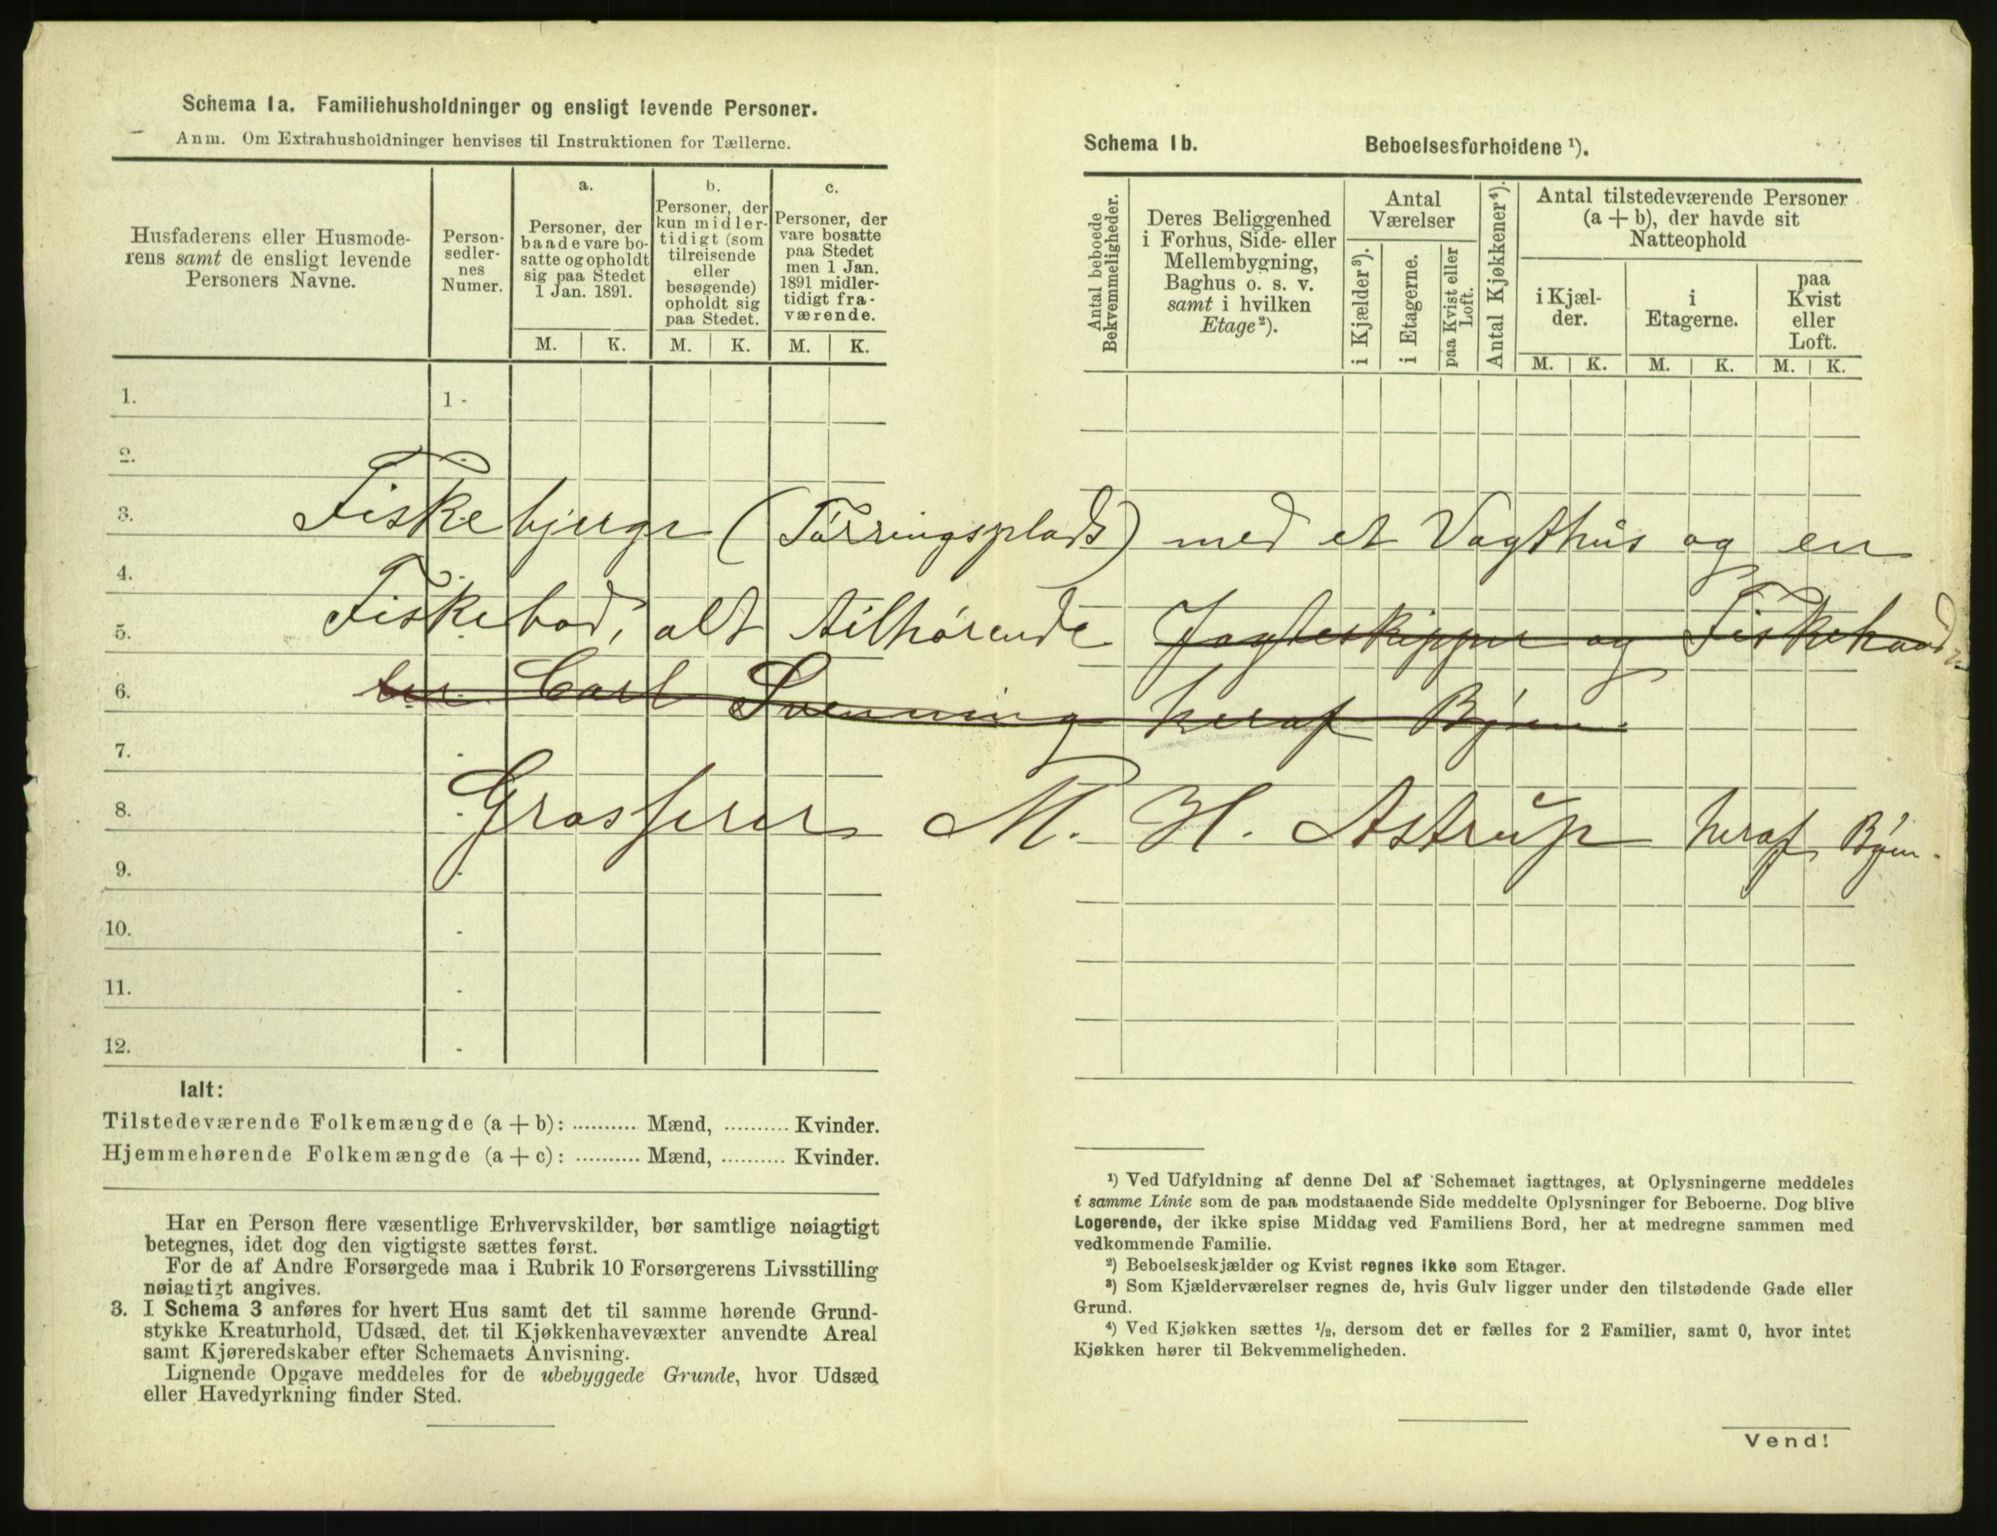 Schema 1a. Familiehusholdninger og ensligt levende Personer.
Anm. Om Extrahusholdninger henvises til Instruktionen for Tællerne.
Husfaderens eller Husmode-
rens samt de ensligt levende
Personers Navne.
Person-
sedler-
nes
Numer.
a.
Personer, der
baade vare bo-
satte og opholdt
sig paa Stedet
1 Jan. 1891.
b.
Personer, der
kun midler-
tidigt (som
tilreisende
eller
besøgende)
opholdt sig
paa Stedet.
c.
Personer, der
vare bosatte
paa Stedet
men 1 Jan.
1891 midler-
tidigt fra-
værende.
M. K. M. K. M. K.
Schema 1b. Beboelsesforholdene ¹).
Antal beboede
Bekvemmeligheder.
Deres Beliggenhed
i Forhus, Side- eller
Mellembygning,
Baghus o. s. v.
samt i hvilken
Etage²).
Antal
Værelser
i Kjælder³).
i Etagerne.
paa Kvist eller
Loft.
Antal Kjøkkener⁴).
Antal tilstedeværende Personer
(a + b), der havde sit
Natteophold
i Kjæl-
der.
i
Etagerne.
paa
Kvist
eller
Loft.
M. K. M. K. M. K.
1. 1 -
2. -
3.
Fiskebjerge (Tørringsplads) med et Vagthus og en
4. -
Fiskebod, alt tilhørende Jagteskipper og Fiskehand
5.
ler Carl Svenning heraf Byen.
6.
7. -
Grosserer M. H. Astrup heraf Byen.
8. -
9. -
10. -
11. -
12. -
Ialt:
Tilstedeværende Folkemængde (a + b): .......... Mænd, .......... Kvinder.
Hjemmehørende Folkemængde (a + c): .......... Mænd, .......... Kvinder.
Har en Person flere væsentlige Erhvervskilder, bør samtlige nøiagtigt
betegnes, idet dog den vigtigste sættes først.
For de af Andre Forsørgede maa i Rubrik 10 Forsørgerens Livsstilling
nøiagtigt angives.
3. I Schema 3 anføres for hvert Hus samt det til samme hørende Grund-
stykke Kreaturhold, Udsæd, det til Kjøkkenhavevæxter anvendte Areal
samt Kjøreredskaber efter Schemaets Anvisning.
Lignende Opgave meddeles for de ubebyggede Grunde, hvor Udsæd
eller Havedyrkning finder Sted.
¹) Ved Udfyldning af denne Del af Schemaet iagttages, at Oplysningerne meddeles
i samme Linie som de paa modstaaende Side meddelte Oplysninger for Beboerne. Dog blive
Logerende, der ikke spise Middag ved Familiens Bord, her at medregne sammen med
vedkommende Familie.
²) Beboelseskjælder og Kvist regnes ikke som Etager.
³) Som Kjælderværelser regnes de, hvis Gulv ligger under den tilstødende Gade eller
Grund.
⁴) Ved Kjøkken sættes ½, dersom det er fælles for 2 Familier, samt 0, hvor intet
Kjøkken hører til Bekvemmeligheden.
Vend!